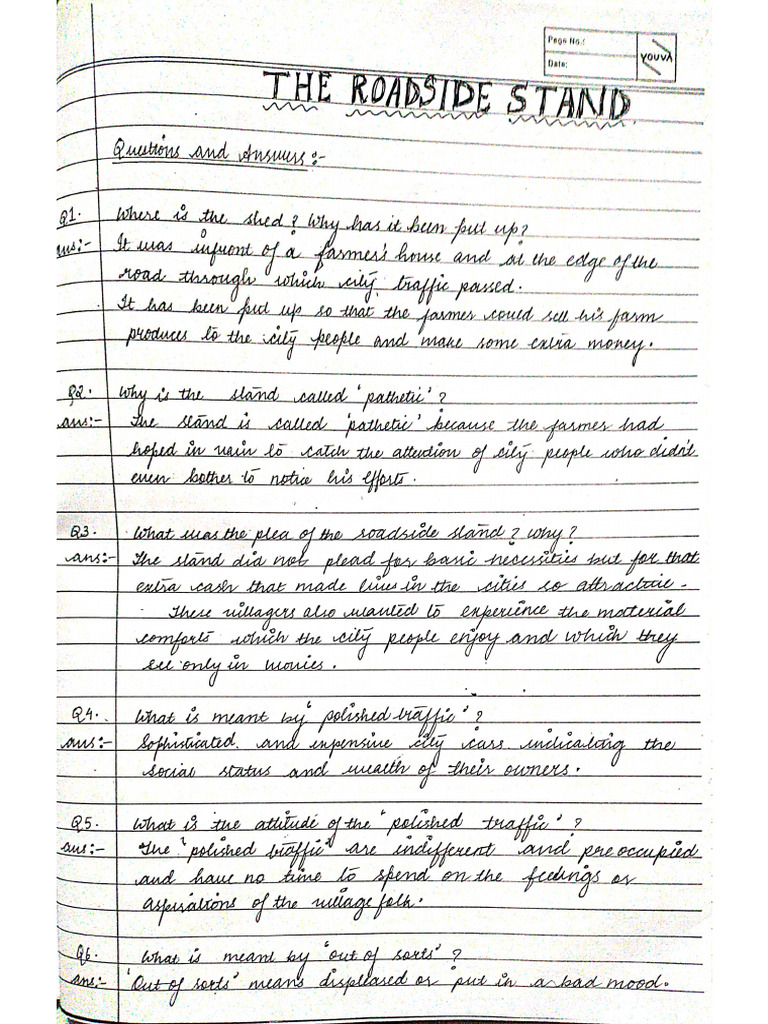 Page No.:
Date:
YOUVA
THE ROADSIDE STAND
Questions and Answers :-
Q1. Where is the shed? Why has it been put up?
ans:- It was infront of a farmer's house and at the edge of the
road through which city traffic passed.
It has been put up so that the farmer could sell his farm
produces to the city people and make some extra money.
Q2. Why is the stand called 'pathetic'?
ans:- The stand is called 'pathetic' because the farmer had
hoped in vain to catch the attention of city people who didn't
even bother to notice his efforts.
Q3. What was the plea of the roadside stand? Why?
ans:- The stand did not plead for basic necessities but for that
extra cash that made lives in the cities so attractive.
These villagers also wanted to experience the material
comforts which the city people enjoy and which they
see only in movies.
Q4. What is meant by "polished traffic"?
ans:- Sophisticated and expensive city cars indicating the
social status and wealth of their owners.
Q5. What is the attitude of the "polished traffic"?
ans:- The "polished traffic" are indifferent and preoccupied
and have no time to spend on the feelings or
aspirations of the village folk.
Q6. What is meant by "out of sorts"?
ans:- "Out of sorts" means displeased or put in a bad mood.